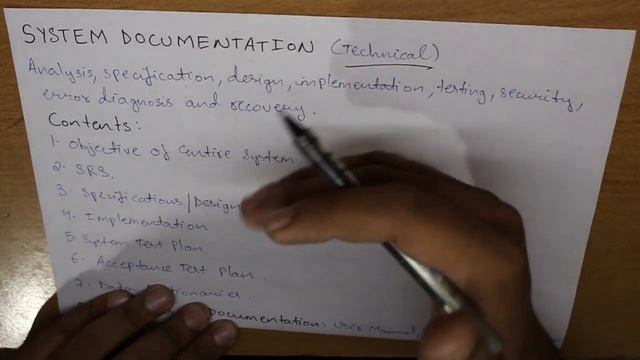 SYSTEM DOCUMENTATION (Technical)
Analysis, specification, design, implementation, testing, security,
error diagnosis and recovery.
Contents:
1. Objective of entire system
2. SRS.
3. Specifications/Design
4. Implementation
5 System Test Plan
6. Acceptance Test Plan.
7. Data
Documentation: User Manual,